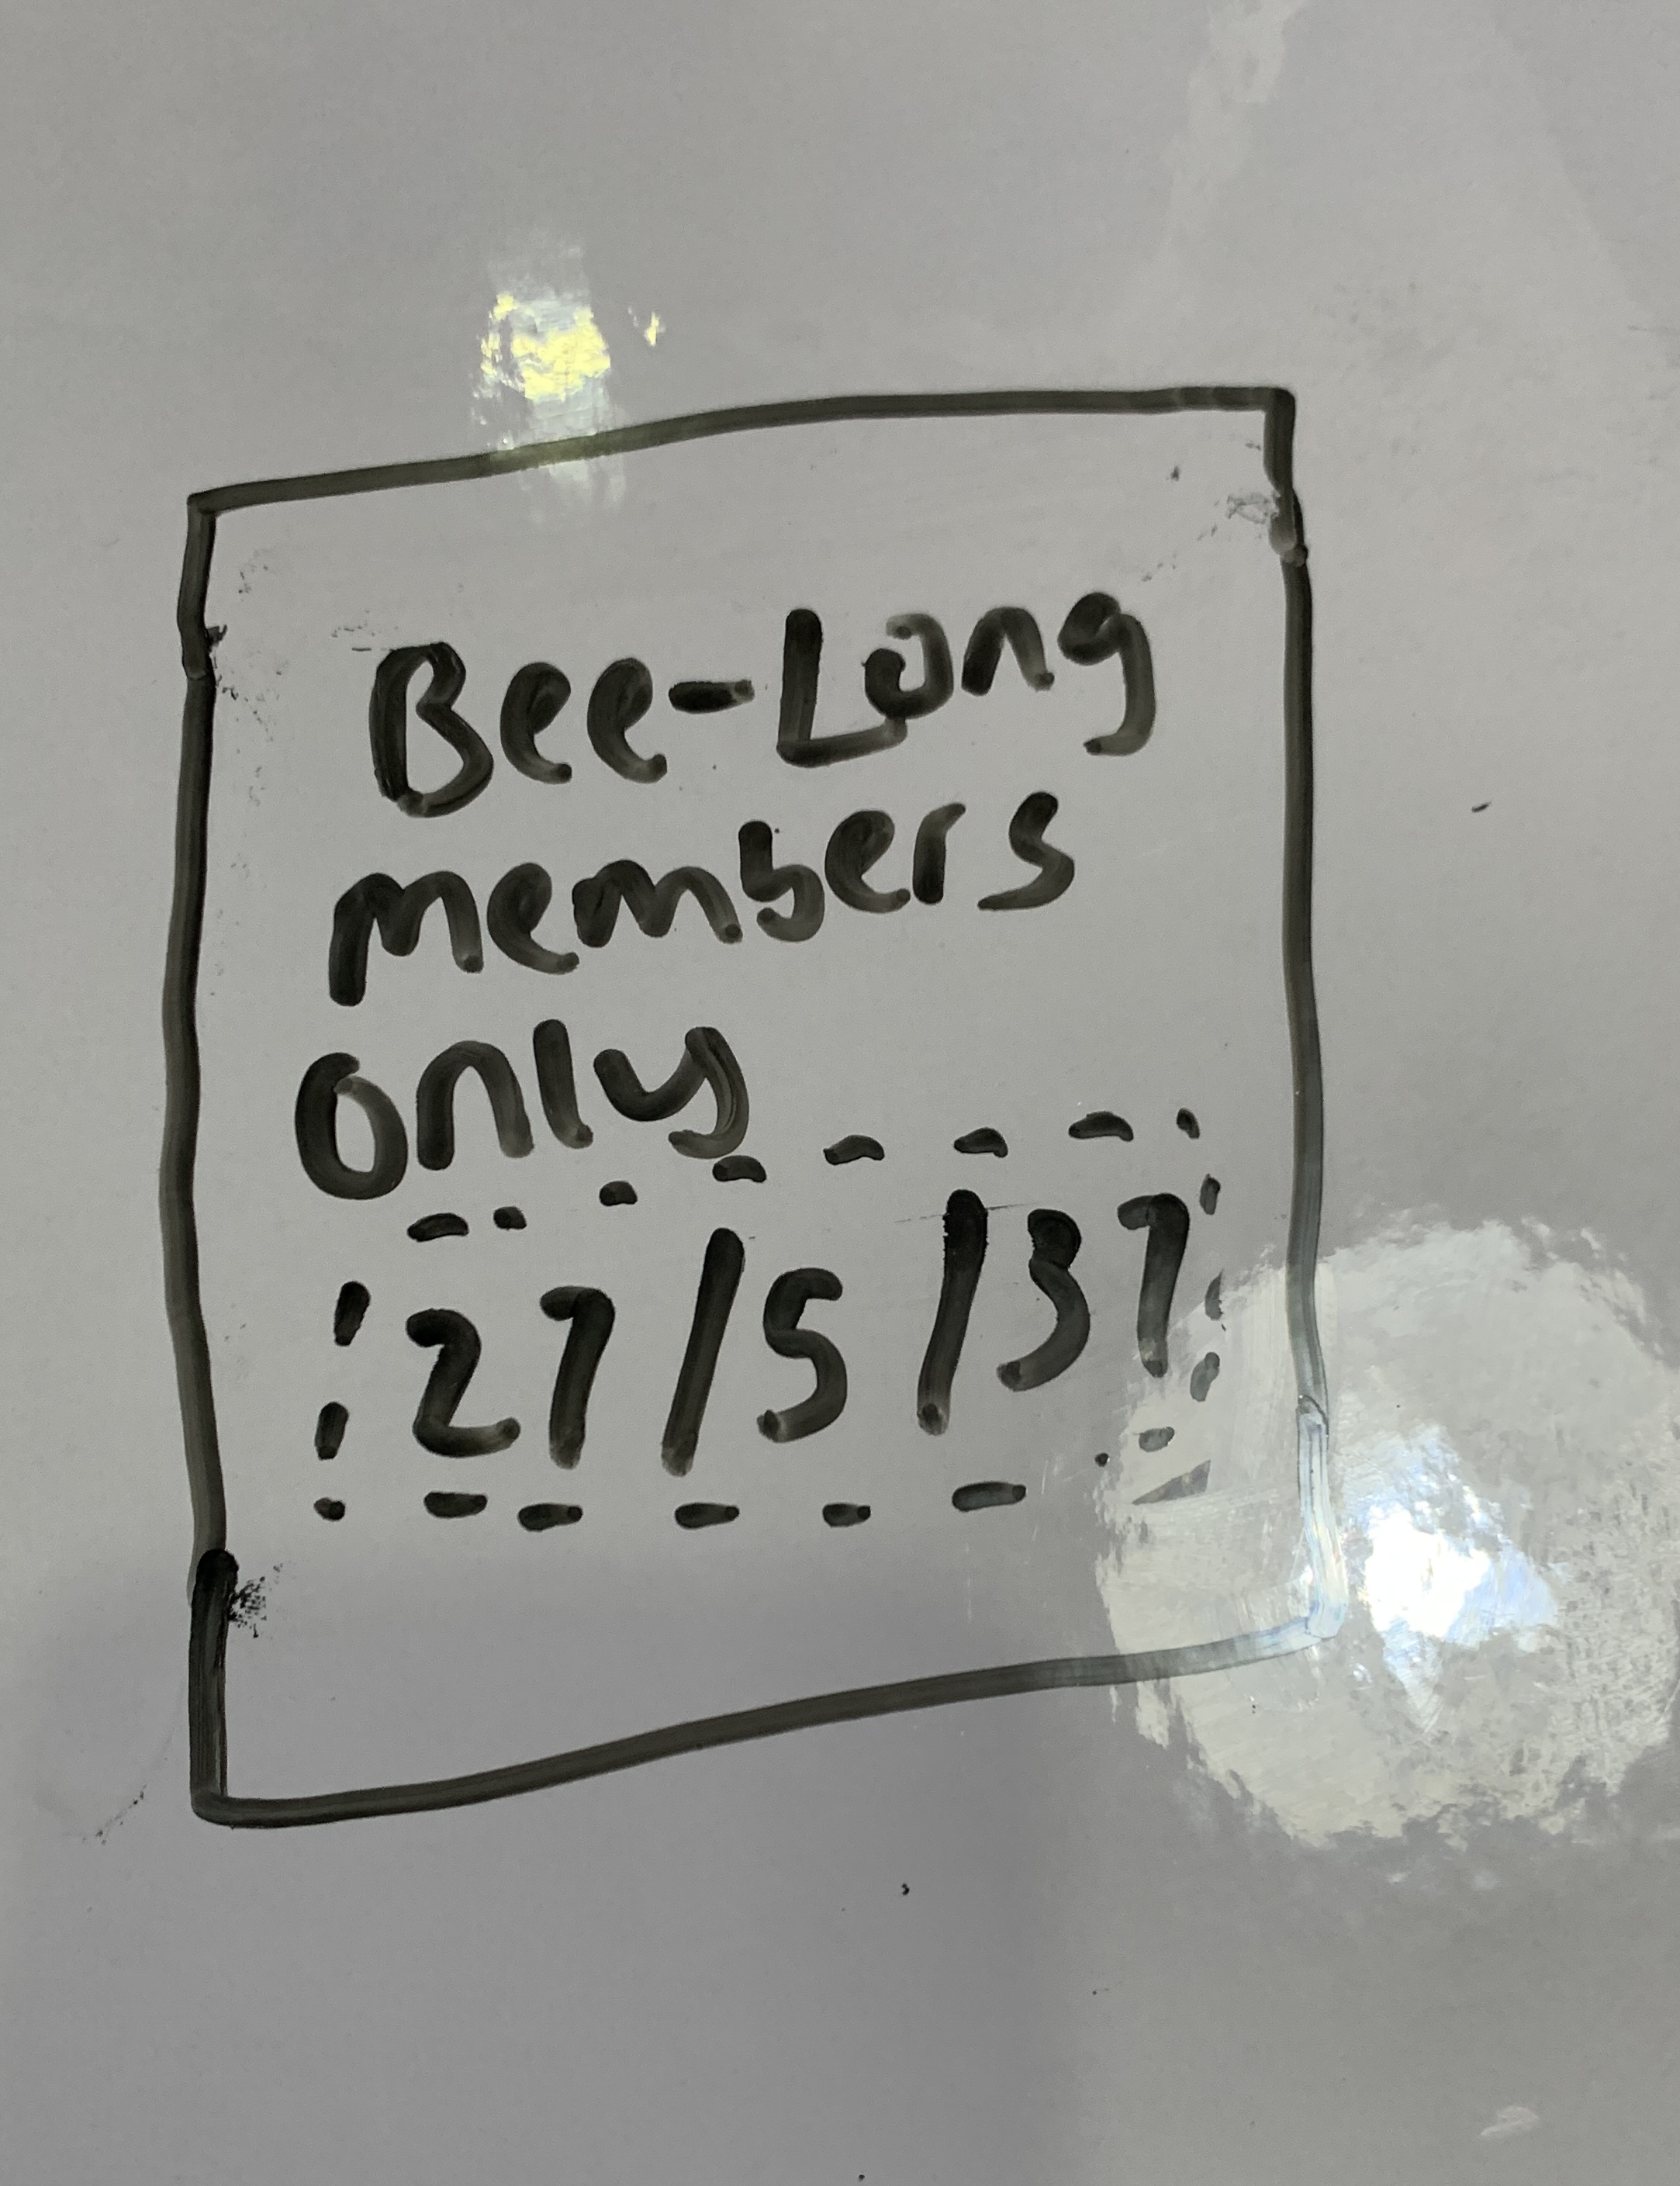 Bee-Long
members
only
27/5/37